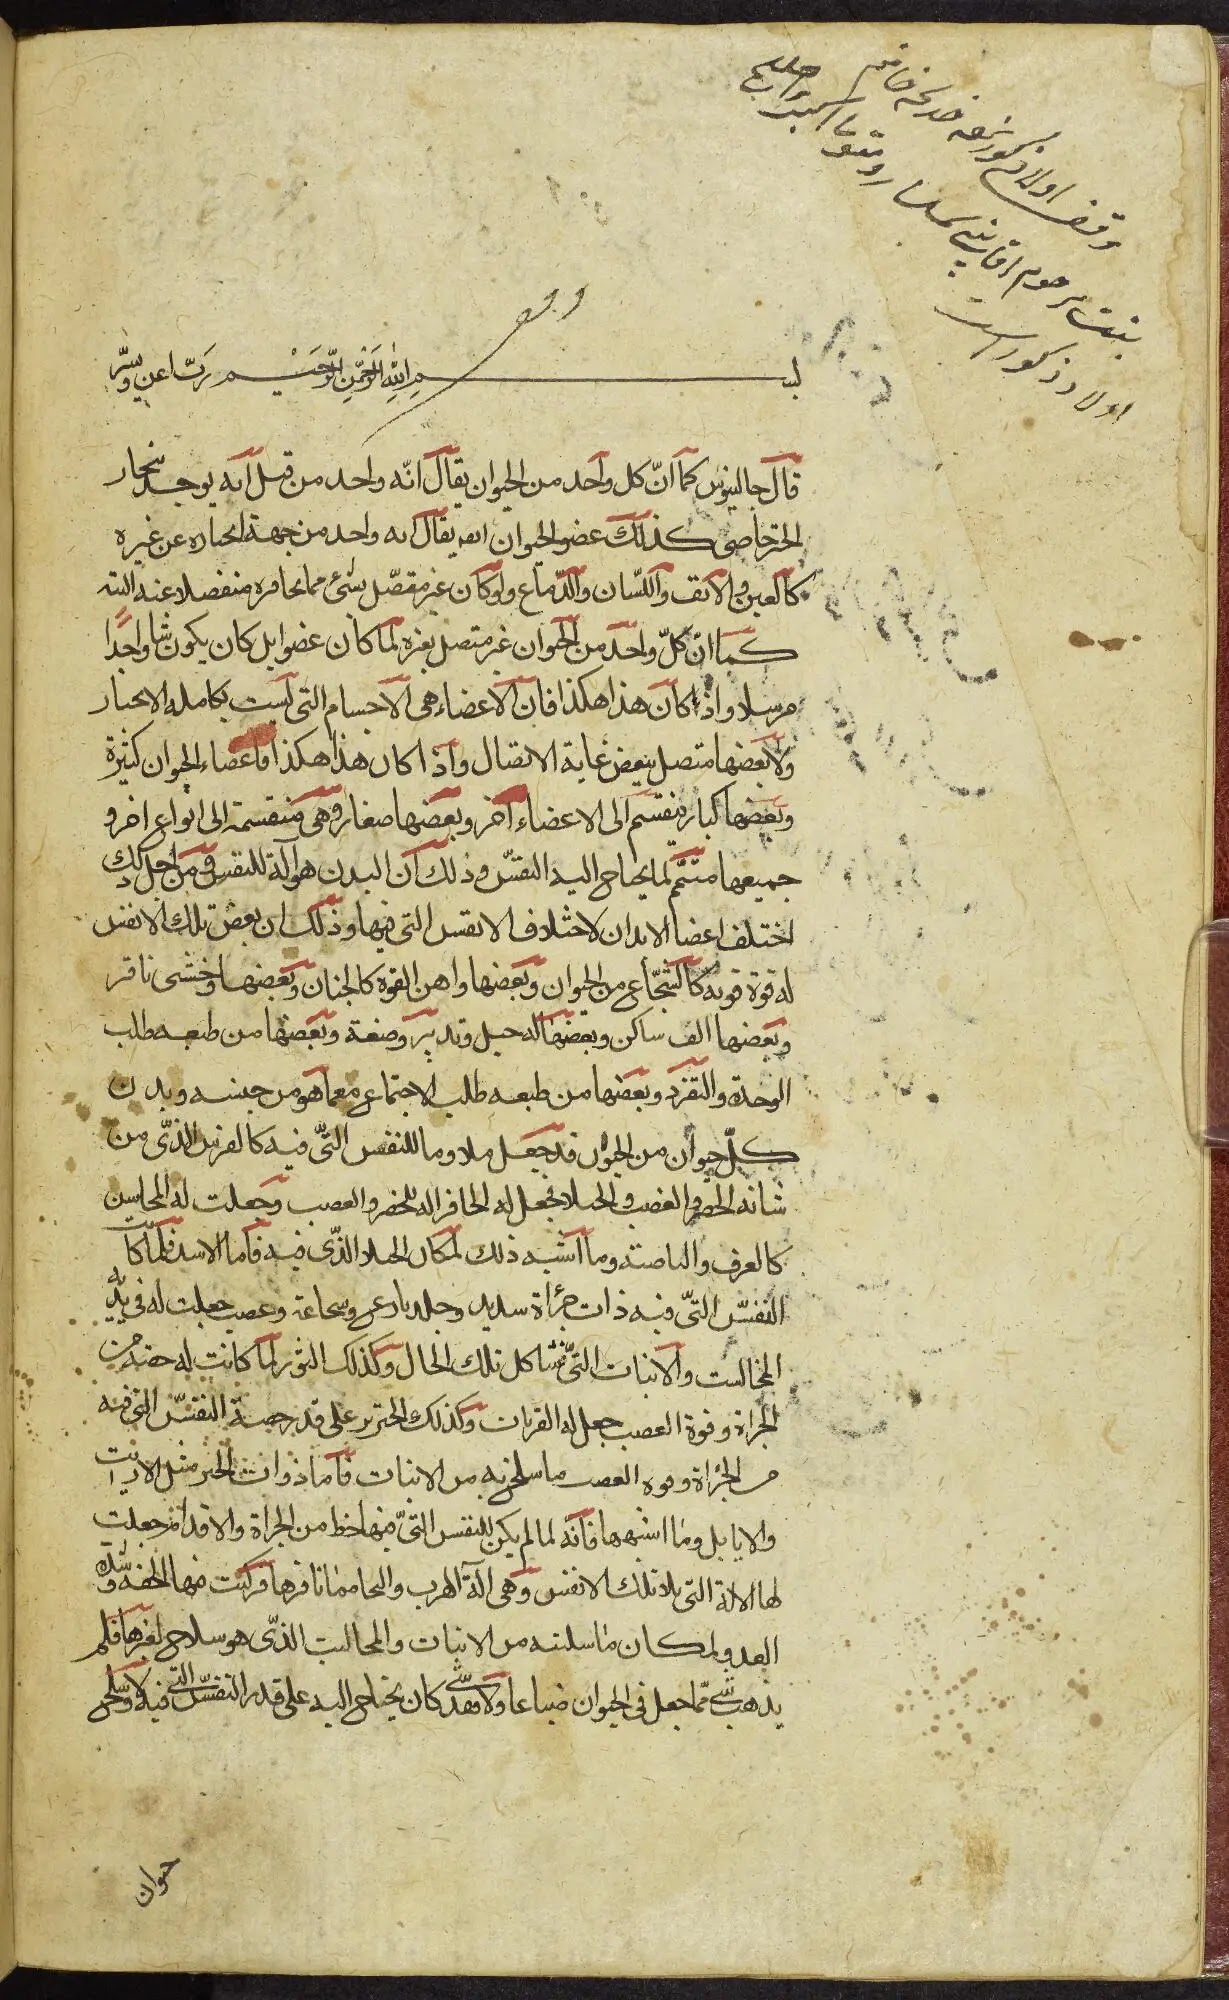 وقف اولاد ذكور
بنت مرحوم اقا
اولاد ذكور است
وقف
بسم الله الرحمن الرحيم رب اعن ويسر
قال جالينوس كما ان كل واحد من الحيوان يقال انه واحد من قبل انه يوجد بنحاز
خاصى كذلك عضو الحيوان انه يقال انه واحد من جهة انحيازه عن غيره
كالعين والانف واللسان والدماغ ولو كان غير متصل بشئ مما يجاوره منفصلا عنه البتة
كما ان كل واحد من الحيوان غير متصل بغيره لما كان عضوا بل كان يكون شيا واحدا
مرسلا واذا كان هذا هكذا فان الاعضاء هى الاجسام التى ليست بكاملة الانحياز
ولا بعضها متصل ببعض غاية الاتصال واذا كان هذا هكذا فاعضاء الحيوان كثيرة
وبعضها كبار ينقسم الى الاعضاء اخر وبعضها صغار وهى منقسمة الى انواع اخر و
جميعها متمم لما يحتاج اليه النفس وذلك ان البدن هو آلة للنفس ومن اجل ذلك
اختلف اعضا الابدان لاختلاف الانفس التى فيها وذلك ان بعض تلك الانفس
له قوة قوية كالشجاع من الحيوان وبعضها واهن القوة كالجبان وبعضها وحشى نافر
وبعضها الف ساكن وبعضها له حيل وتدبير وصنعة وبعضها من طبعه طلب
الوحدة والتفرد وبعضها من طبعه طلب الاجتماع مع ما هو من جنسه وبدن
كل حيوان من الحيوان قد جعل ملاوما للنفس التى فيه كالفرس الذى من
شانه الحضر والغضب والخيلا فجعل له الحافر الة للحضر والغضب وجعلت له المحاسن
كالعرف والناصية وما اشبه ذلك لمكان الخيلا الذى فيه فاما الاسد فلما كانت
النفس التى فيه ذات جراة شديد وجلد بارع وشجاعة وغضب جعلت له فى يديه
المخاليب والانياب التى تشاكل تلك الحال وكذلك الثور لما كانت له حصة من
الجراة وقوة الغضب جعل له القرنان وكذلك الخنزير على قدر حصة النفس التى فيه
من الجراة وقوة الغضب ما سلح به من الانياب فاما ذوات الجبن مثل الارانب
والايايل وما اشبهها فانه لما لم يكن للنفس التى فيها حظ من الجراة والاقدام جعلت
لها الالة التى تلا تلك الانفس وهى آلة الهرب والنجا مما نافرها فركبت فيها الخفة وشدة
العدو لمكان ما سلبته من الانياب والمخاليب الذى هو سلاح لغيرها فلم
يذهب شى مما جعل فى الحيوان ضياعا ولا فقد شى كان يحتاج اليه على قدر النفس التى فيه
حيوان